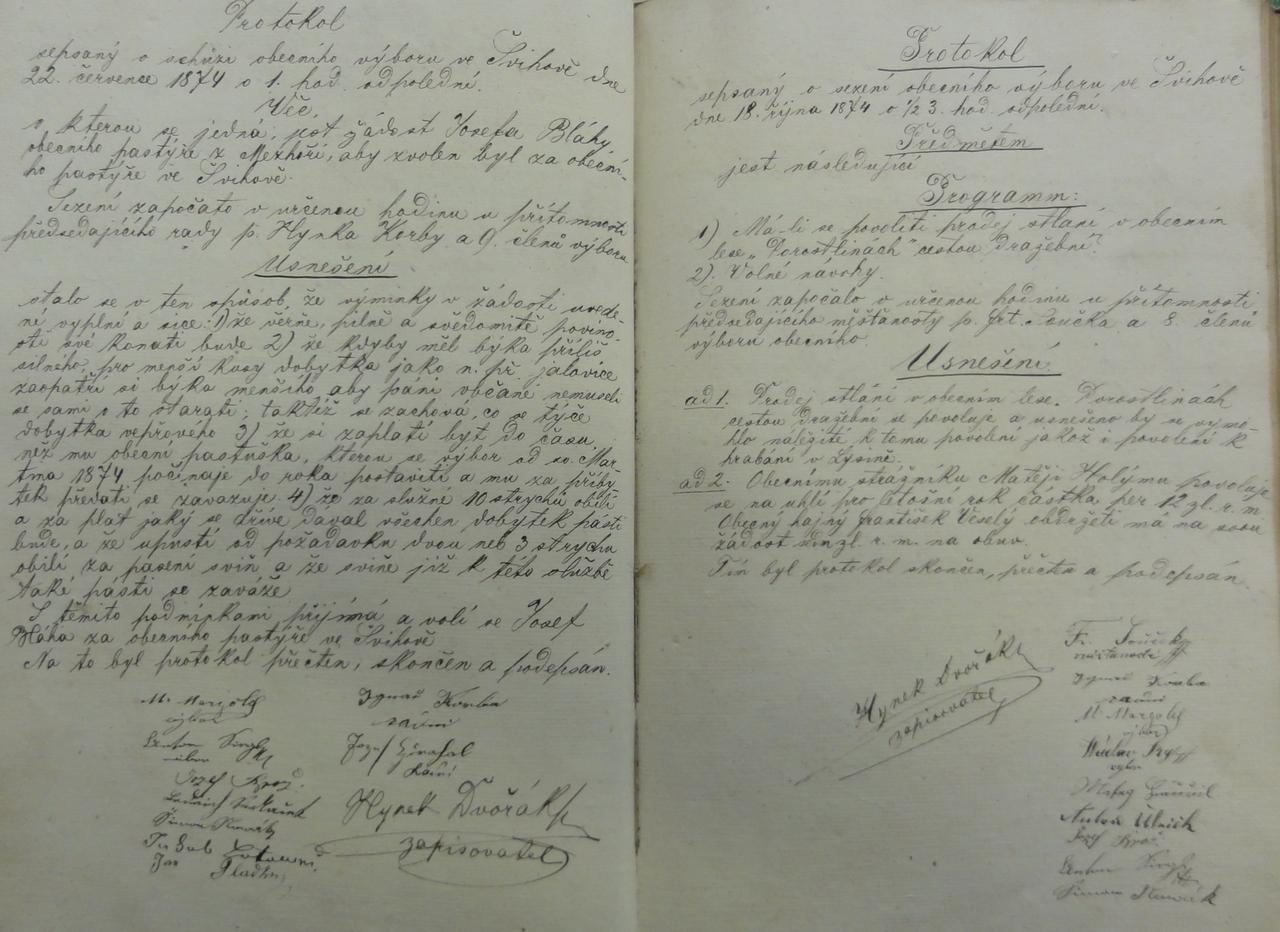 Protokol
sepsaný o schůzi obecního výboru ve Švihově dne
22. července 1874 o 1. hod. odpolední.
Věc,
o kterou se jedná, jest žádost Josefa Bláhy,
obecního pastýře z Mezhoří, aby zvolen byl za obecní-
ho pastýře ve Švihově.
Sezení započato v určenou hodinu u přítomnosti
předsedajícího rady p. Hynka Korby a 9. členů výboru
Usnešení
stalo se v ten spůsob, že výminky v žádosti uvede-
né vyplní a sice: 1) že věrně, pilně a svědomitě povinno-
sti své konati bude 2) že kdyby měl býka příliš
silného, pro menší kusy dobytka jako n. př. jalovice
zaopatří si býka menšího aby páni občané nemuseli
se sami o to starati; taktéž se zachová, co se týče
dobytka vepřového 3) že si zaplatí byt do času,
než mu obecní pastuška, kterou se výbor od sv. Mar-
tina 1874 počínaje do roka postaviti a mu za příby-
tek předati se zavazuje 4) že za služné 10 strychů obilí
a za plat jaký se dříve dával všechen dobytek pásti
bude, a že upustí od požadavku dvou neb 3 strychu
obilí za pasení sviň a že svině již k této službě
také pásti se zaváže
S těmito podmínkami přijímá a volí se Josef
Bláha za obecního pastýře ve Švihově
Na to byl protokol přečten, skončen a podepsán.
M. Margold
výbor
Ignac Korba
radní
Anton
výbor
Josef
radní
Josef
Šimon Nowák
Hynek Dvořák
zapisovatel
Jakub
Jan Hladký
Protokol
sepsaný o sezení obecního výboru ve Švihově
dne 18. října 1874 o ½ 3. hod. odpolední.
Předmětem
jest následující
Programm:
1) Má-li se povoliti prodej stlaní v obecním
lese „Dorostlinách" cestou dražební?
2). Volné návrhy.
Sezení započalo v určenou hodinu u přítomnosti
předsedajícího měšťanosty p. Frt. Součka a 8. členů
výboru obecního.
Usnešení
ad 1. Prodej stlání v obecním lese. Dorostlinách
cestou dražební se povoluje a usnešeno by se vymo-
hlo naležité k tomu povolení jakož i povolení k
hrabání v Lysině.
ad 2. Obecnímu strážníku Matěji Holýmu povoluje
se na uhlí pro letošní rok částka per 12 zl. r. m
Obecný hajný František Veselý obdržeti má na svou
žádost zl. r. m. na obuv.
Tím byl protokol skončen, přečten a podepsán.
Fr. Souček
měšťanosta
Ignac Korba
radní
Hynek Dvořák
zapisovatel
M. Margold
výbor
Václav
výbor
Matěj
Anton Ulrich
Josef
Anton
Šimon Nowák